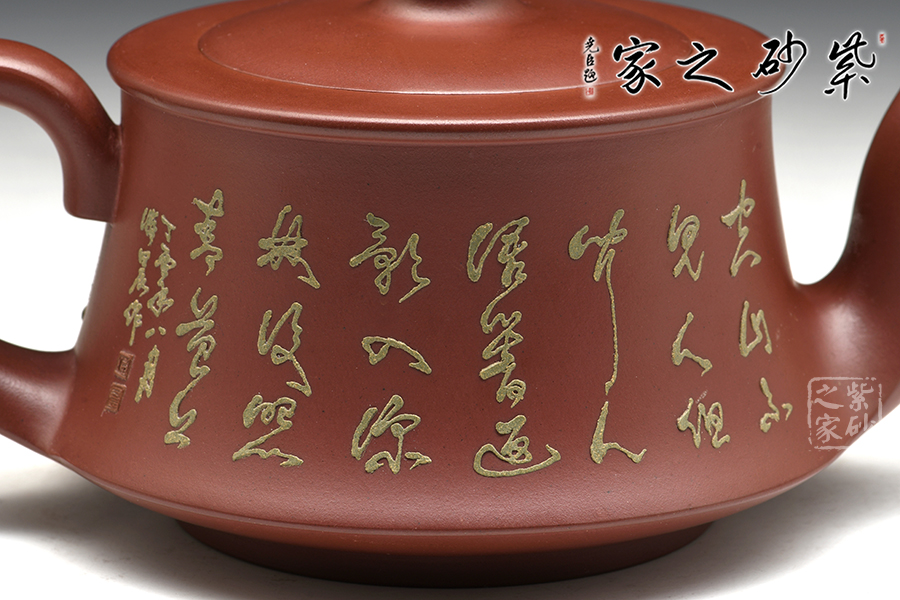 紫砂之家
空山不
見人但
聞人
語響返
影入深
林復照
青苔上
年八月
作
紫砂
之家